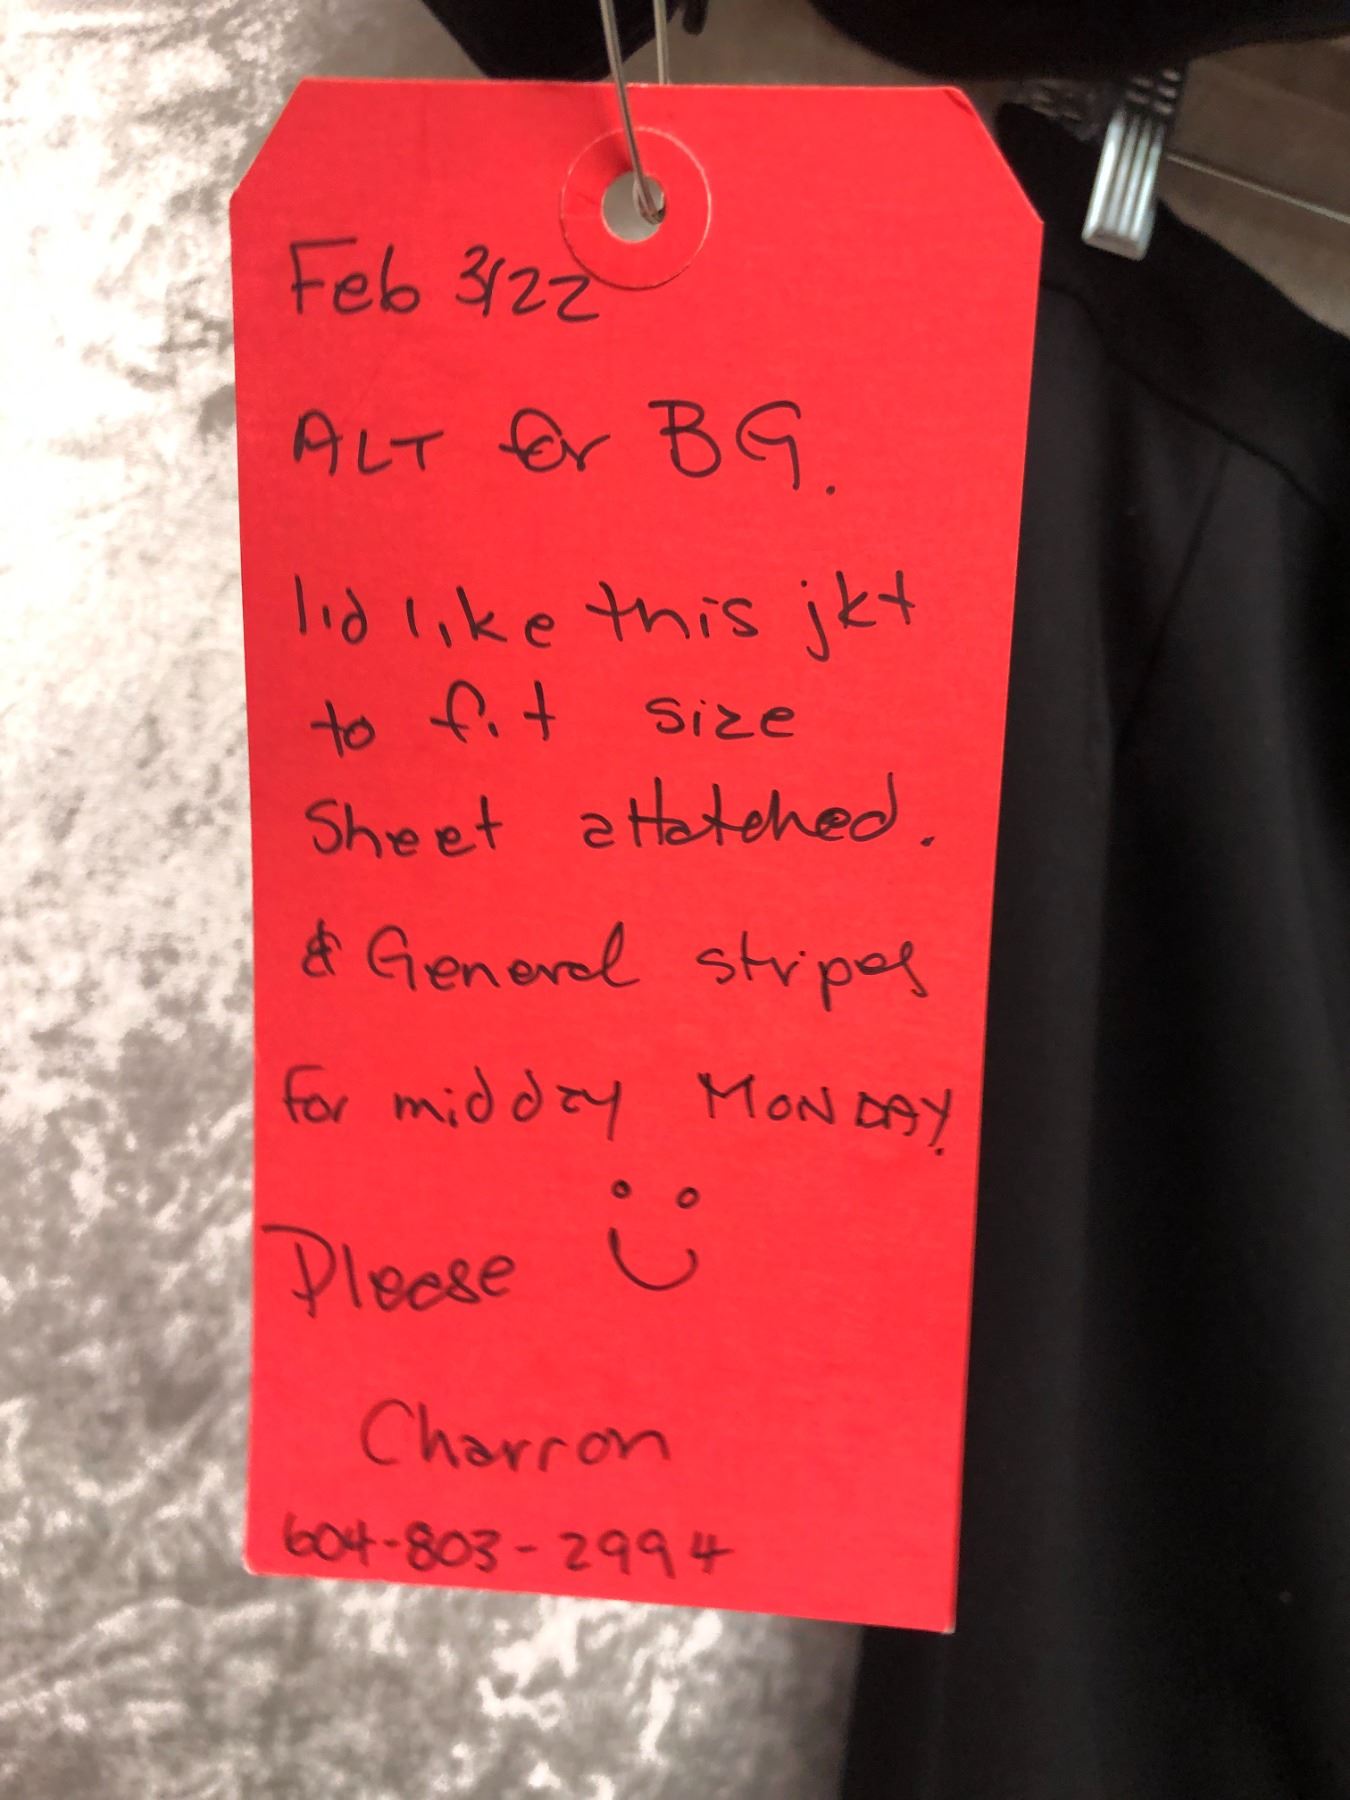 Feb 3/22
ALT for BG.
I'd like this jkt
to fit size
Sheet attatched.
& General stripes
for midday MONDAY.
Please
Charron
604-803-2994